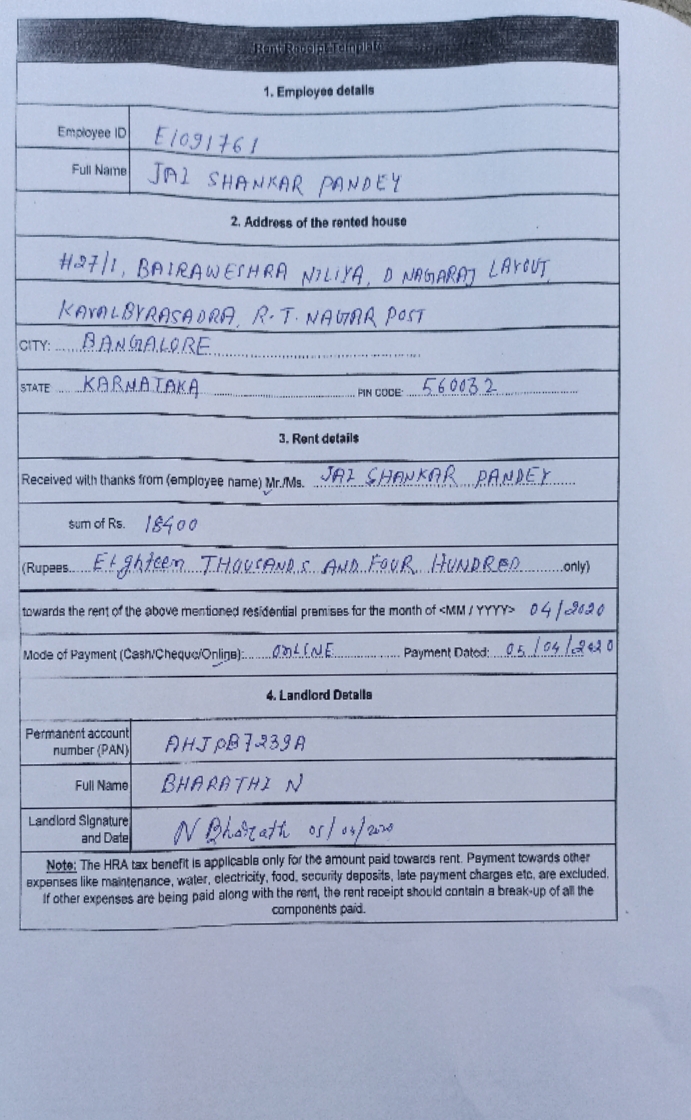 Rent Receipt Template
1. Employee details
Employee ID E1091761
Full Name JAI SHANKAR PANDEY
2. Address of the rented house
#27/1, BAIRAWESHRA NILIYA, D NAGARAJ LAYOUT,
KAVALBYRASADRA, R.T. NAGAR POST
CITY: BANGALORE
STATE KARNATAKA PIN CODE: 560032
3. Rent details
Received with thanks from (employee name) Mr./Ms. JAI SHANKAR PANDEY
sum of Rs. 18400
(Rupees Eighteen THOUSANDS AND FOUR HUNDRED only)
towards the rent of the above mentioned residential premises for the month of <MM / YYYY> 04/2020
Mode of Payment (Cash/Cheque/Online): ONLINE Payment Dated: 05/04/2020
4. Landlord Details
Permanent account
number (PAN) AHJPB7239A
Full Name BHARATHI N
Landlord Signature
and Date N Bharath 05/04/2020
Note: The HRA tax benefit is applicable only for the amount paid towards rent. Payment towards other
expenses like maintenance, water, electricity, food, security deposits, late payment charges etc, are excluded.
If other expenses are being paid along with the rent, the rent receipt should contain a break-up of all the
components paid.